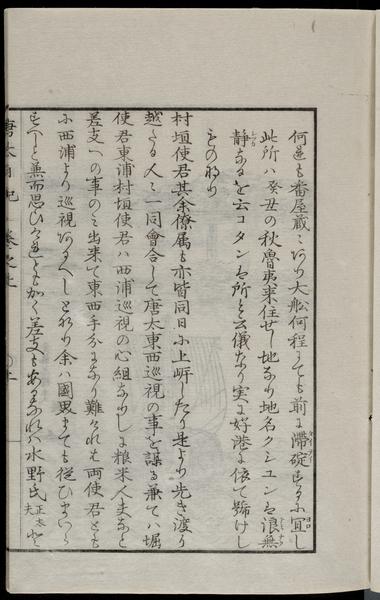 何連も番屋蔵ニ而大舩何程にても前に滞碇するに宜し
此所ハ癸丑の秋魯夷来住せし地なり地名クシユンは浪無
静なるを云コタンは所を云儀なり実に好港に依て号けし
ものなり
村垣使君其余僚属も亦皆同日に上岸したり是より先き渡り
越たる人々一同會合して唐太東西巡視の事を謀る兼てハ堀
使君東浦村垣使君ハ西浦巡視の心組なりしに粮米人夫など
差支への事のミ出来て東西手分なり難けれは両使君とも
に西浦より巡視あるへしとなり余ハ國界までも従ひまいら
すへしと兼而思ひけれとも如く差支もあるなれハ水野氏正太夫と
唐太日記 巻之上